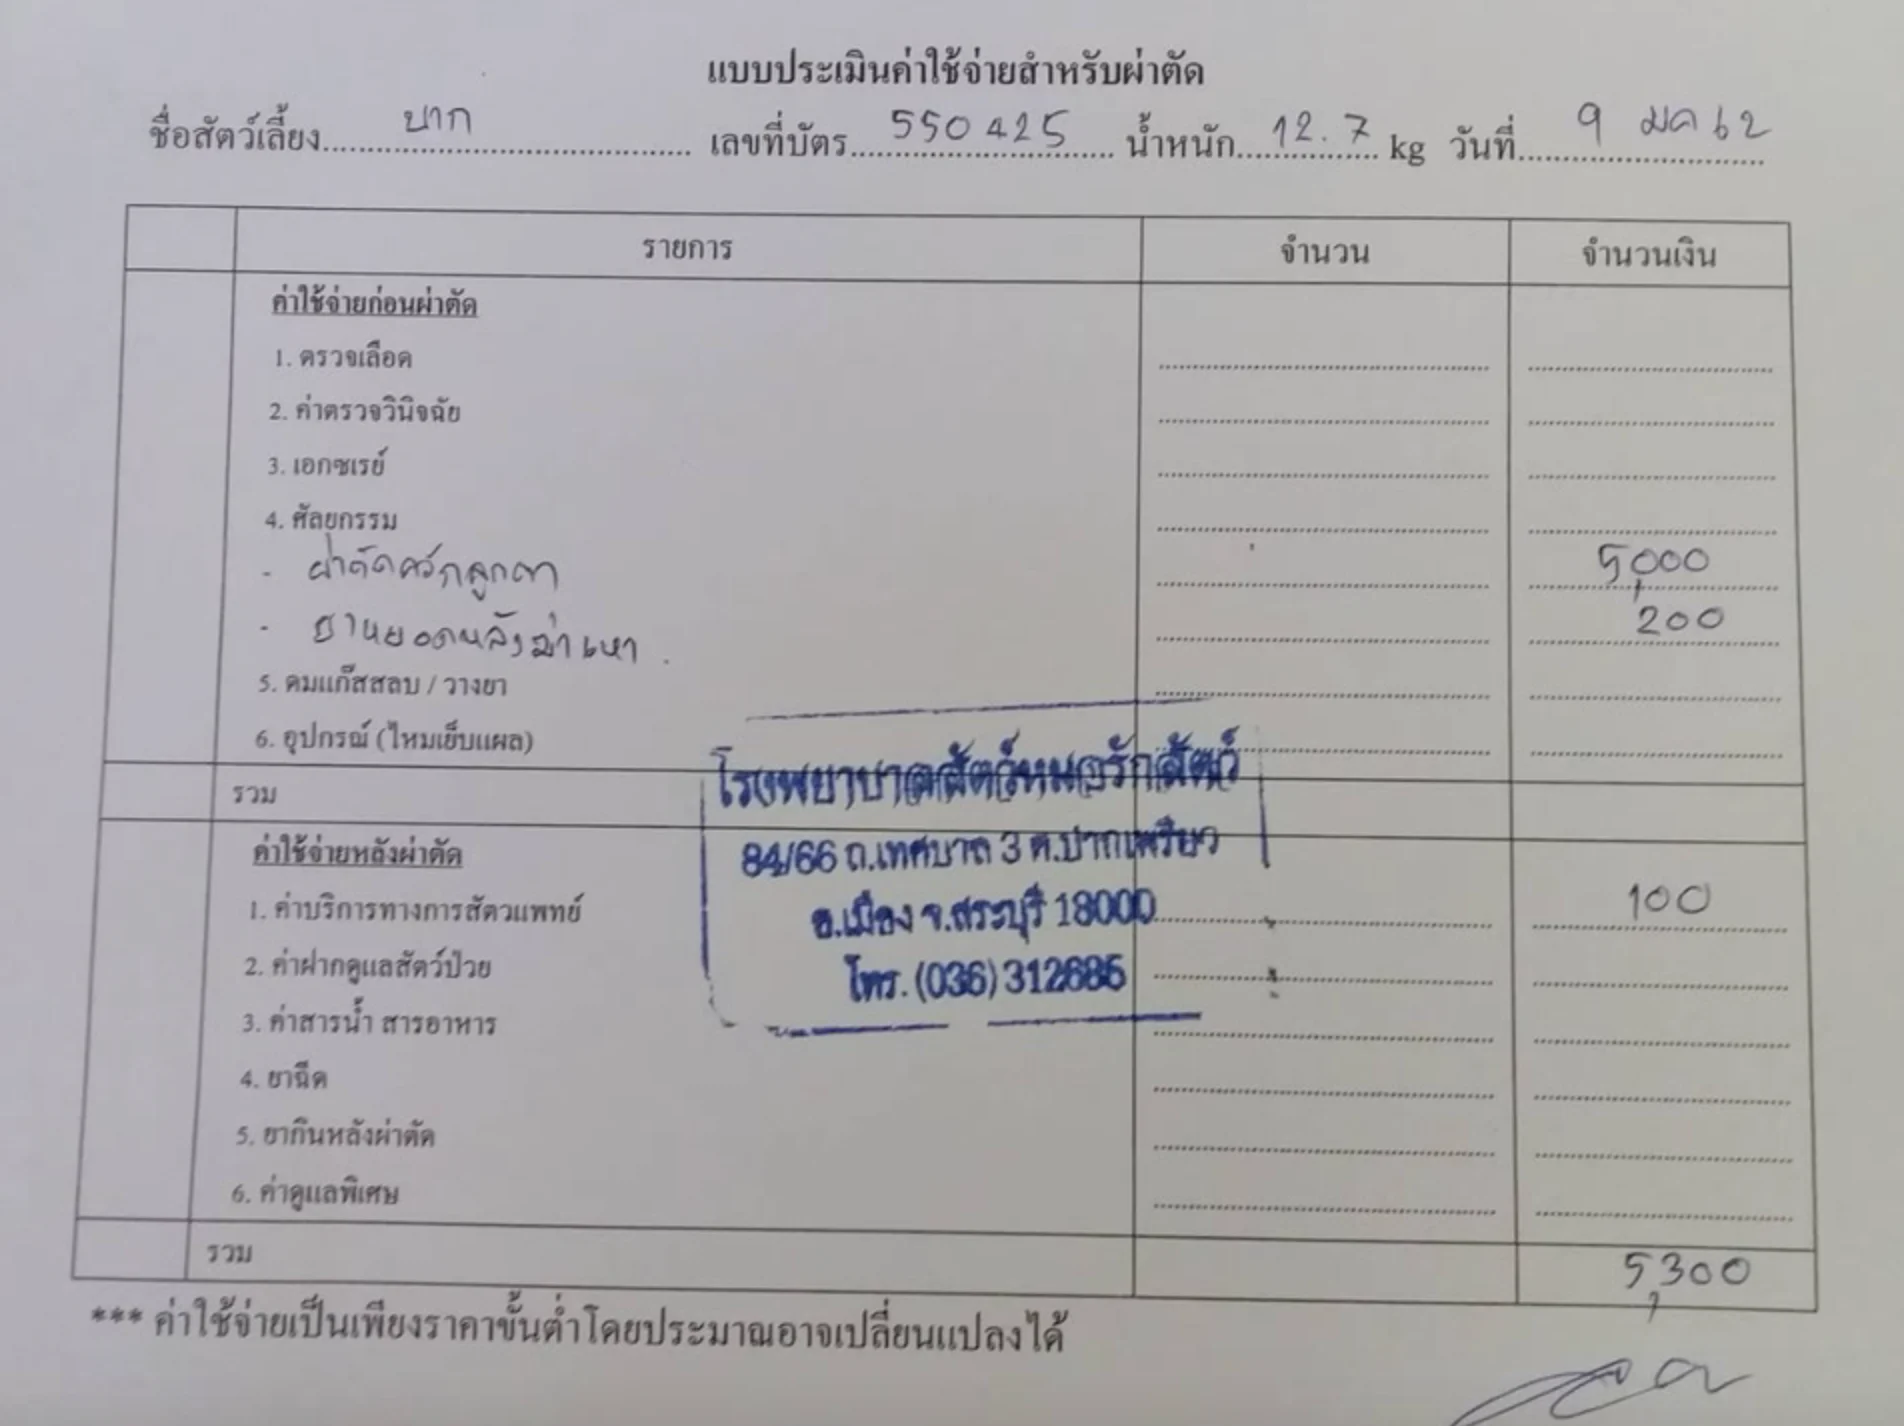 แบบประเมินค่าใช้จ่ายสำหรับผ่าตัด
ชื่อสัตว์เลี้ยง.....บาก..... เลขที่บัตร.....550425..... น้ำหนัก.....12.7..... kg วันที่.....9 มค 62.....
รายการ จำนวน จำนวนเงิน
ค่าใช้จ่ายก่อนผ่าตัด
1. ตรวจเลือด
2. ค่าตรวจวินิจฉัย
3. เอกซเรย์
4. ศัลยกรรม
- ผ่าตัดควักลูกตา 5,000
- 200
5. ดมแก๊สสลบ / วางยา
6. อุปกรณ์ (ไหมเย็บแผล)
รวม
ค่าใช้จ่ายหลังผ่าตัด
1. ค่าบริการทางการสัตวแพทย์ 100
2. ค่าฝากดูแลสัตว์ป่วย
3. ค่าสารน้ำ สารอาหาร
4. ยาฉีด
5. ยากินหลังผ่าตัด
6. ค่าดูแลพิเศษ
รวม 5,300
*** ค่าใช้จ่ายเป็นเพียงราคาขั้นต่ำโดยประมาณอาจเปลี่ยนแปลงได้
โรงพยาบาลสัตว์หมอรักสัตว์
84/66 ถ.เทศบาล 3 ต.ปากเพรียว
อ.เมือง จ.สระบุรี 18000
โทร. (036) 312685